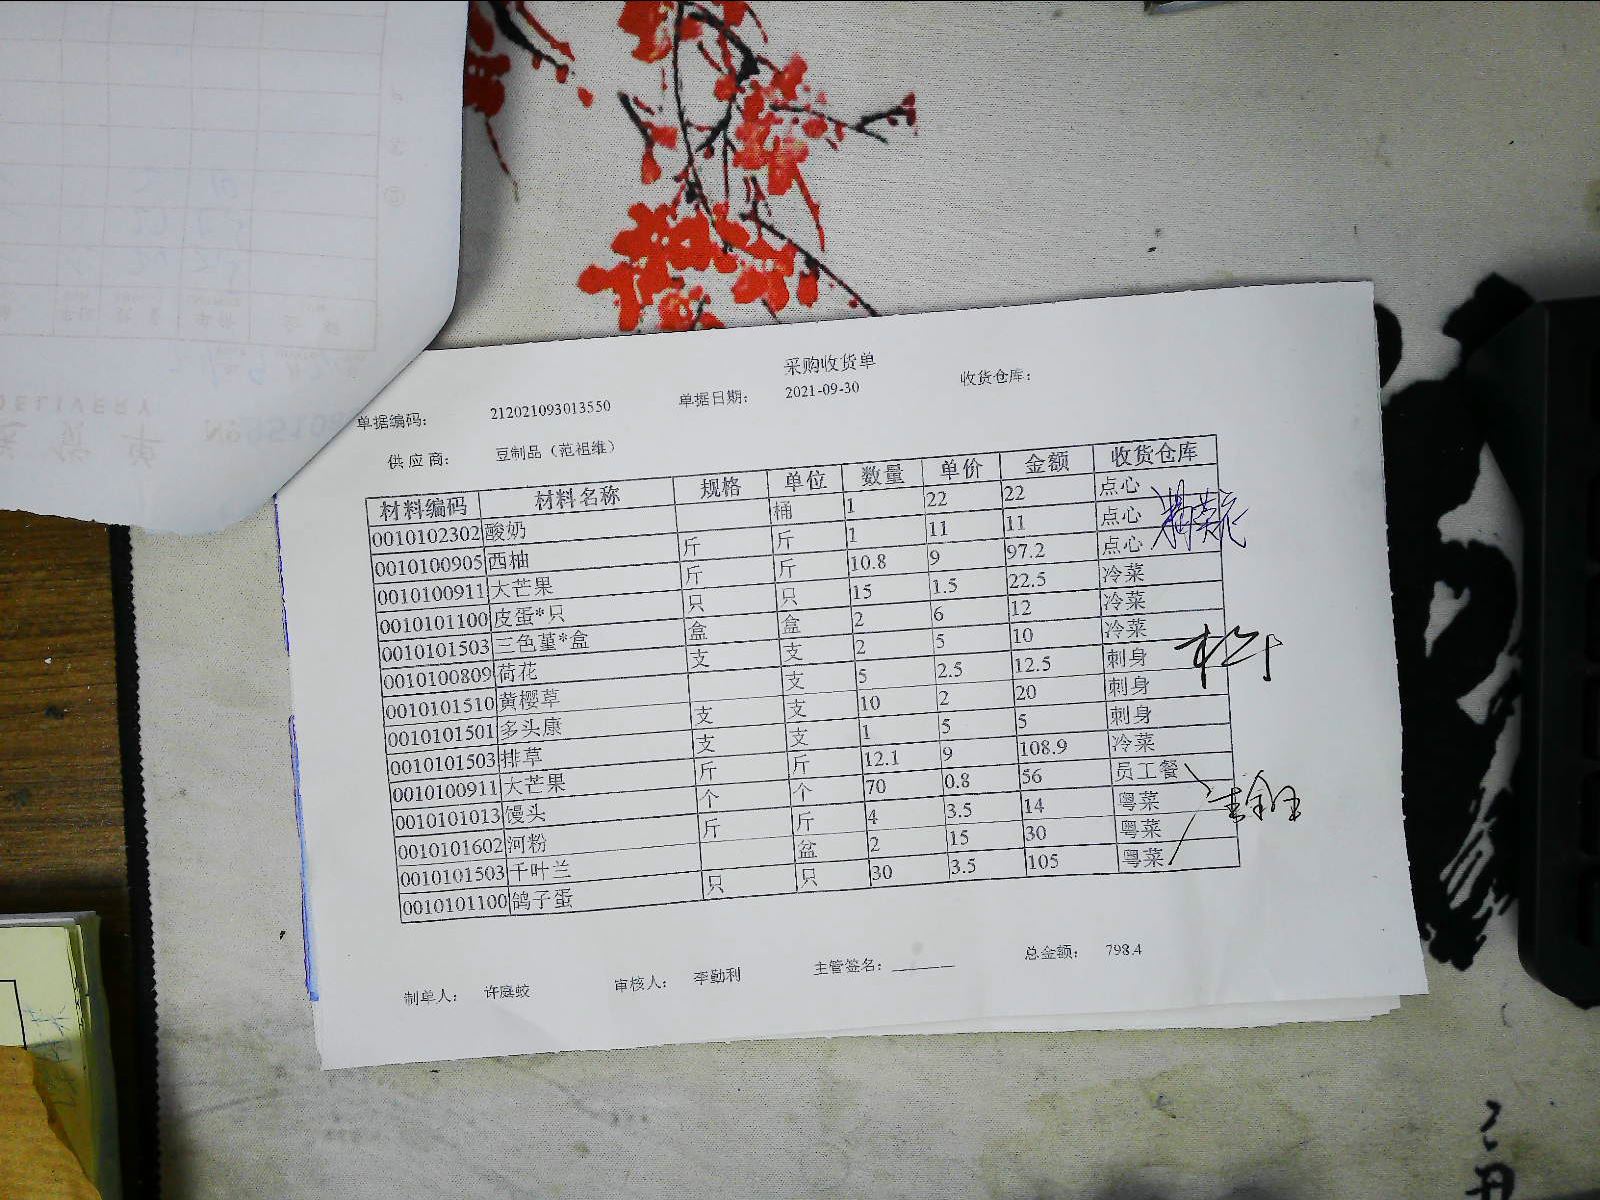 采购收货单
单据编码： 212021093013550 单据日期： 2021-09-30 收货仓库：
供应商： 豆制品（范祖维）
材料编码 材料名称 规格 单位 数量 单价 金额 收货仓库
0010102302 酸奶 桶 1 22 22 点心
0010100905 西柚 斤 斤 1 11 11 点心
0010100911 大芒果 斤 斤 10.8 9 97.2 点心
0010101100 皮蛋*只 只 只 15 1.5 22.5 冷菜
0010101503 三色堇*盒 盒 盒 2 6 12 冷菜
0010100809 荷花 支 支 2 5 10 冷菜
0010101510 黄樱草 支 5 2.5 12.5 刺身
0010101501 多头康 支 支 10 2 20 刺身
0010101503 排草 支 支 1 5 5 刺身
0010100911 大芒果 斤 斤 12.1 9 108.9 冷菜
0010101013 馒头 个 个 70 0.8 56 员工餐
0010101602 河粉 斤 斤 4 3.5 14 粤菜
0010101503 千叶兰 盆 2 15 30 粤菜
0010101100 鸽子蛋 只 只 30 3.5 105 粤菜
制单人： 许庭蛟 审核人： 李勤利 主管签名： 总金额： 798.4